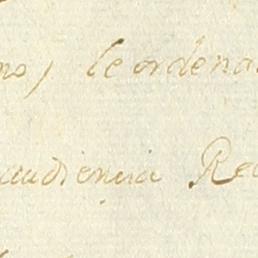 no, le ordena
audiencia Rea